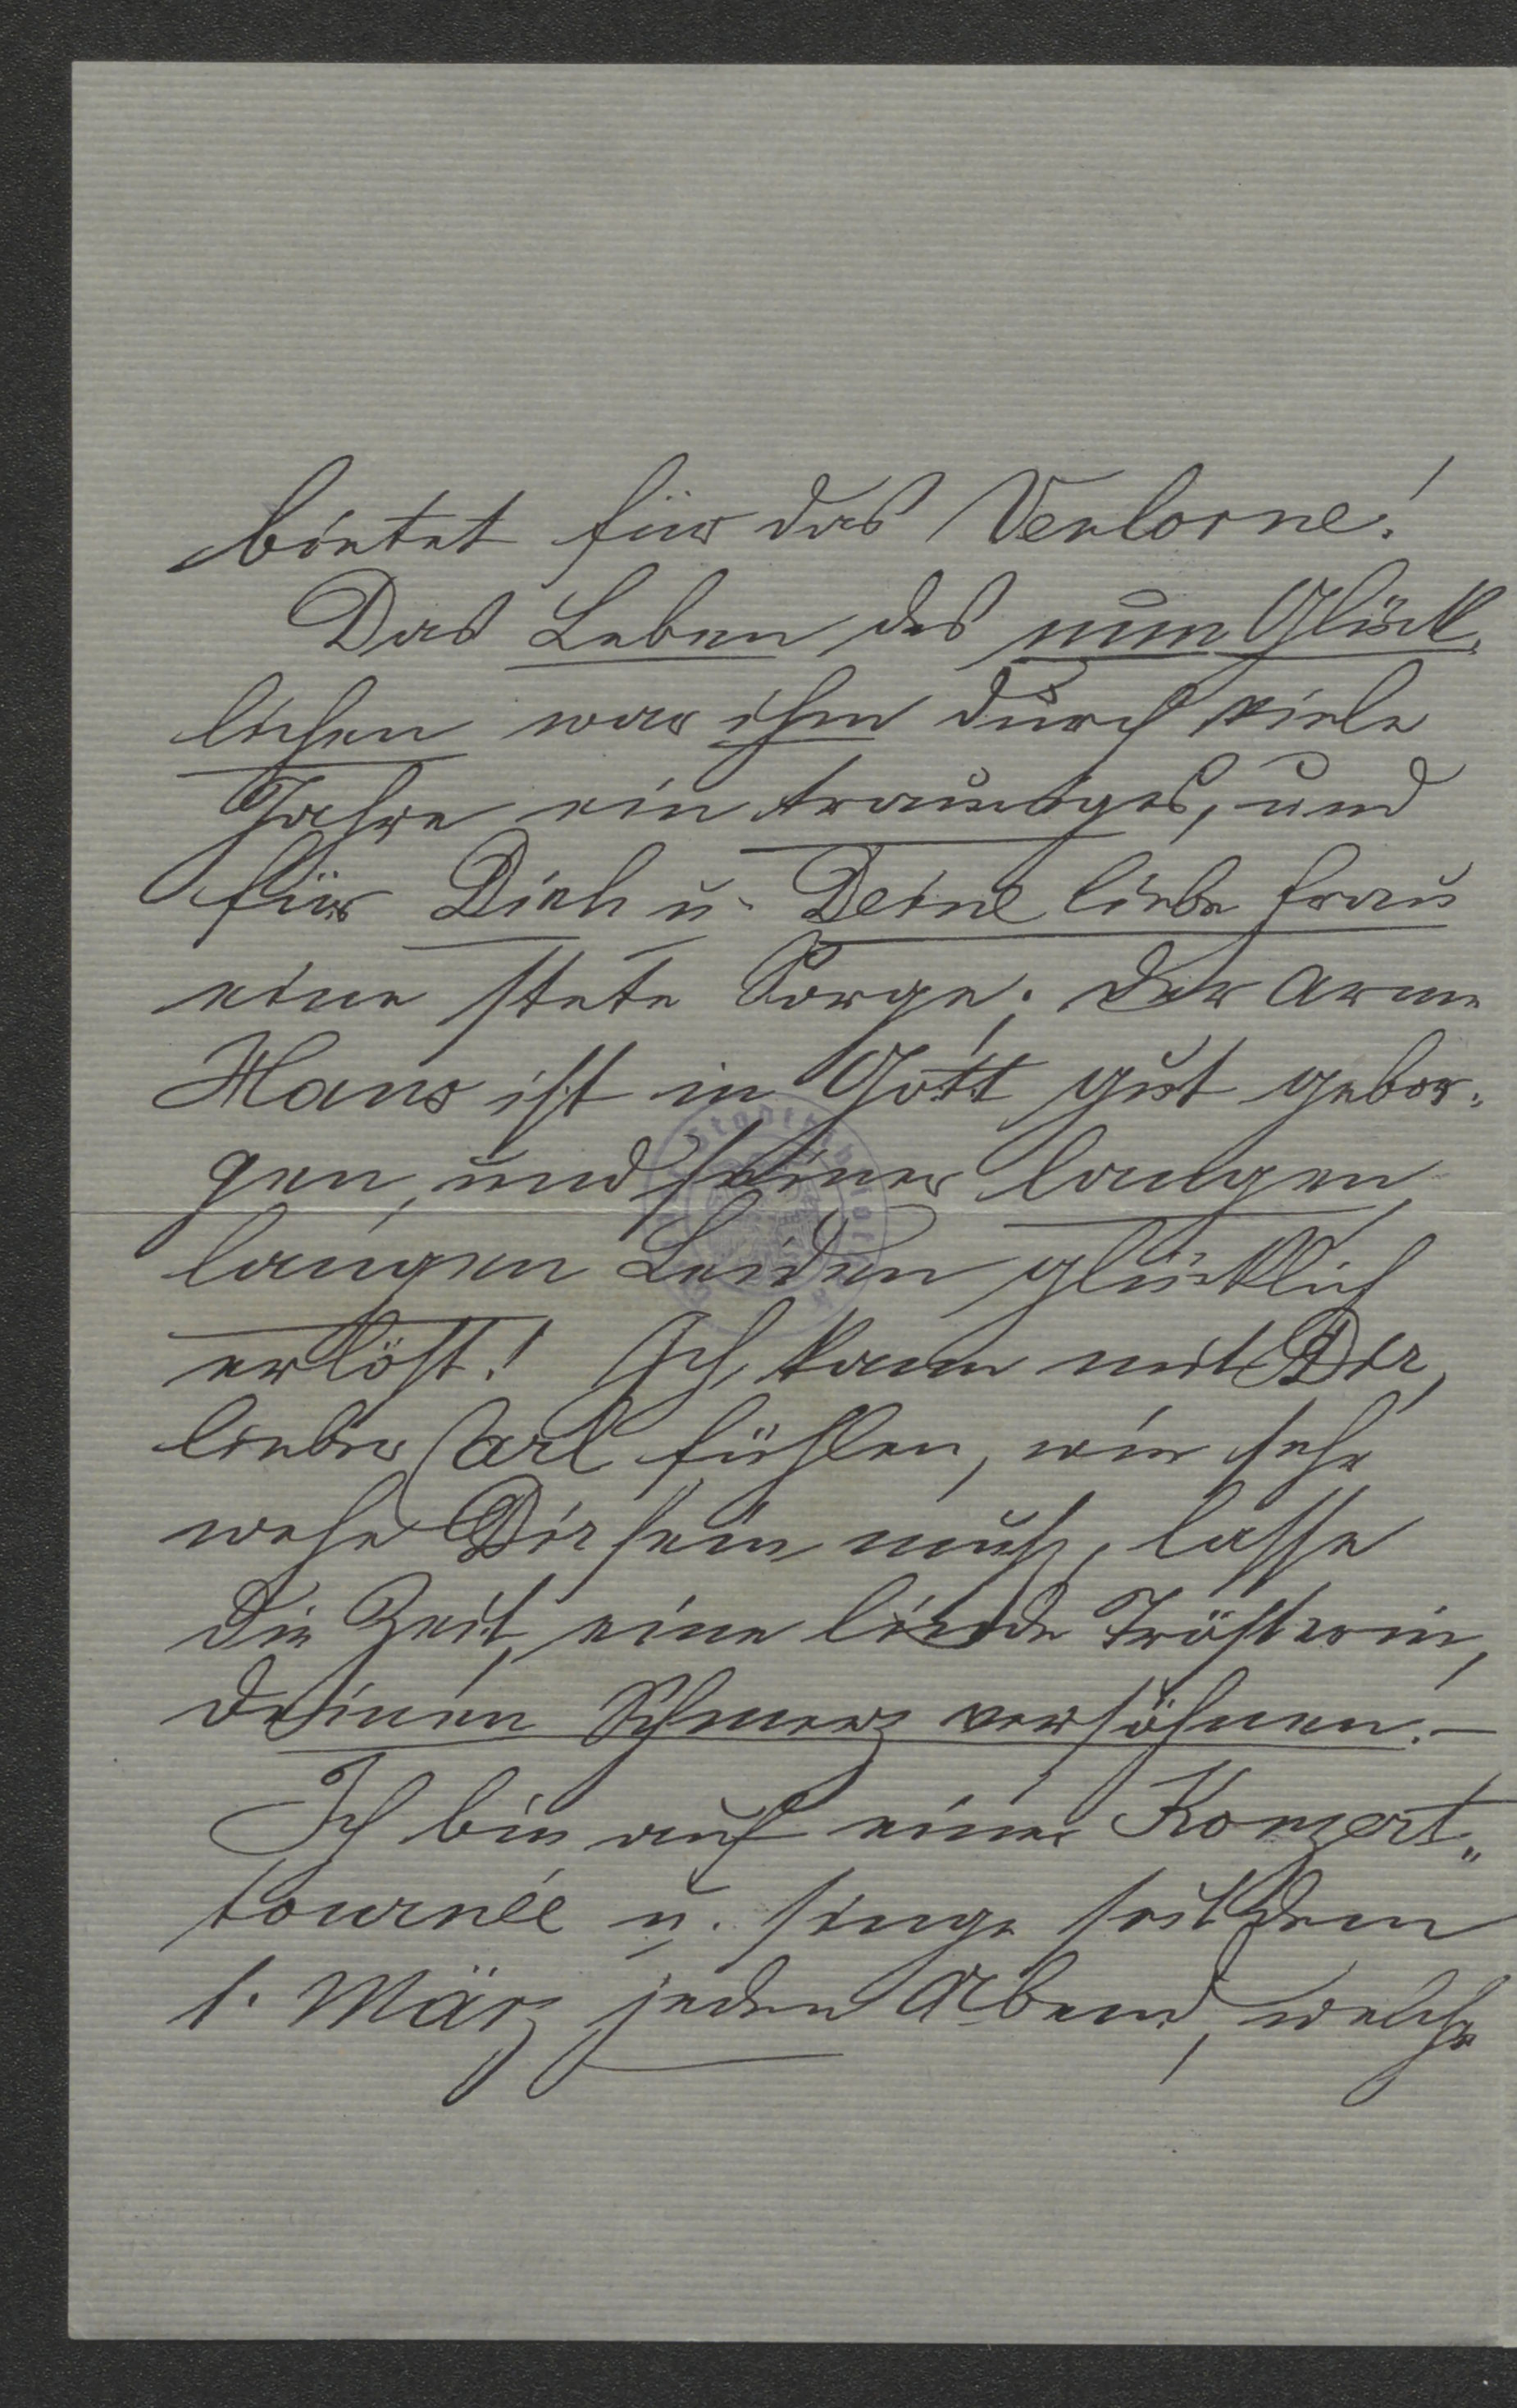 bietet für das Verlorne!
Das Leben des nun Glück-
lichen war ihm durch viele
Jahre ein trauriges, und
für Dich u. Deine liebe Frau
eine stete Sorge; der arme
Hans ist in Gott gut gebor-
gen, und seiner langen
langen Leiden glücklich
erlöst! Ich kann mit Dir,
lieber Carl fühlen, wie sehr
wehe Dir sein muß, lasse
die Zeit, eine linde Trösterin,
Deinen Schmerz versöhnen. –
Ich bin auf einer Konzert-
tournée u. singe seit dem
1. März jeden Abend, welche